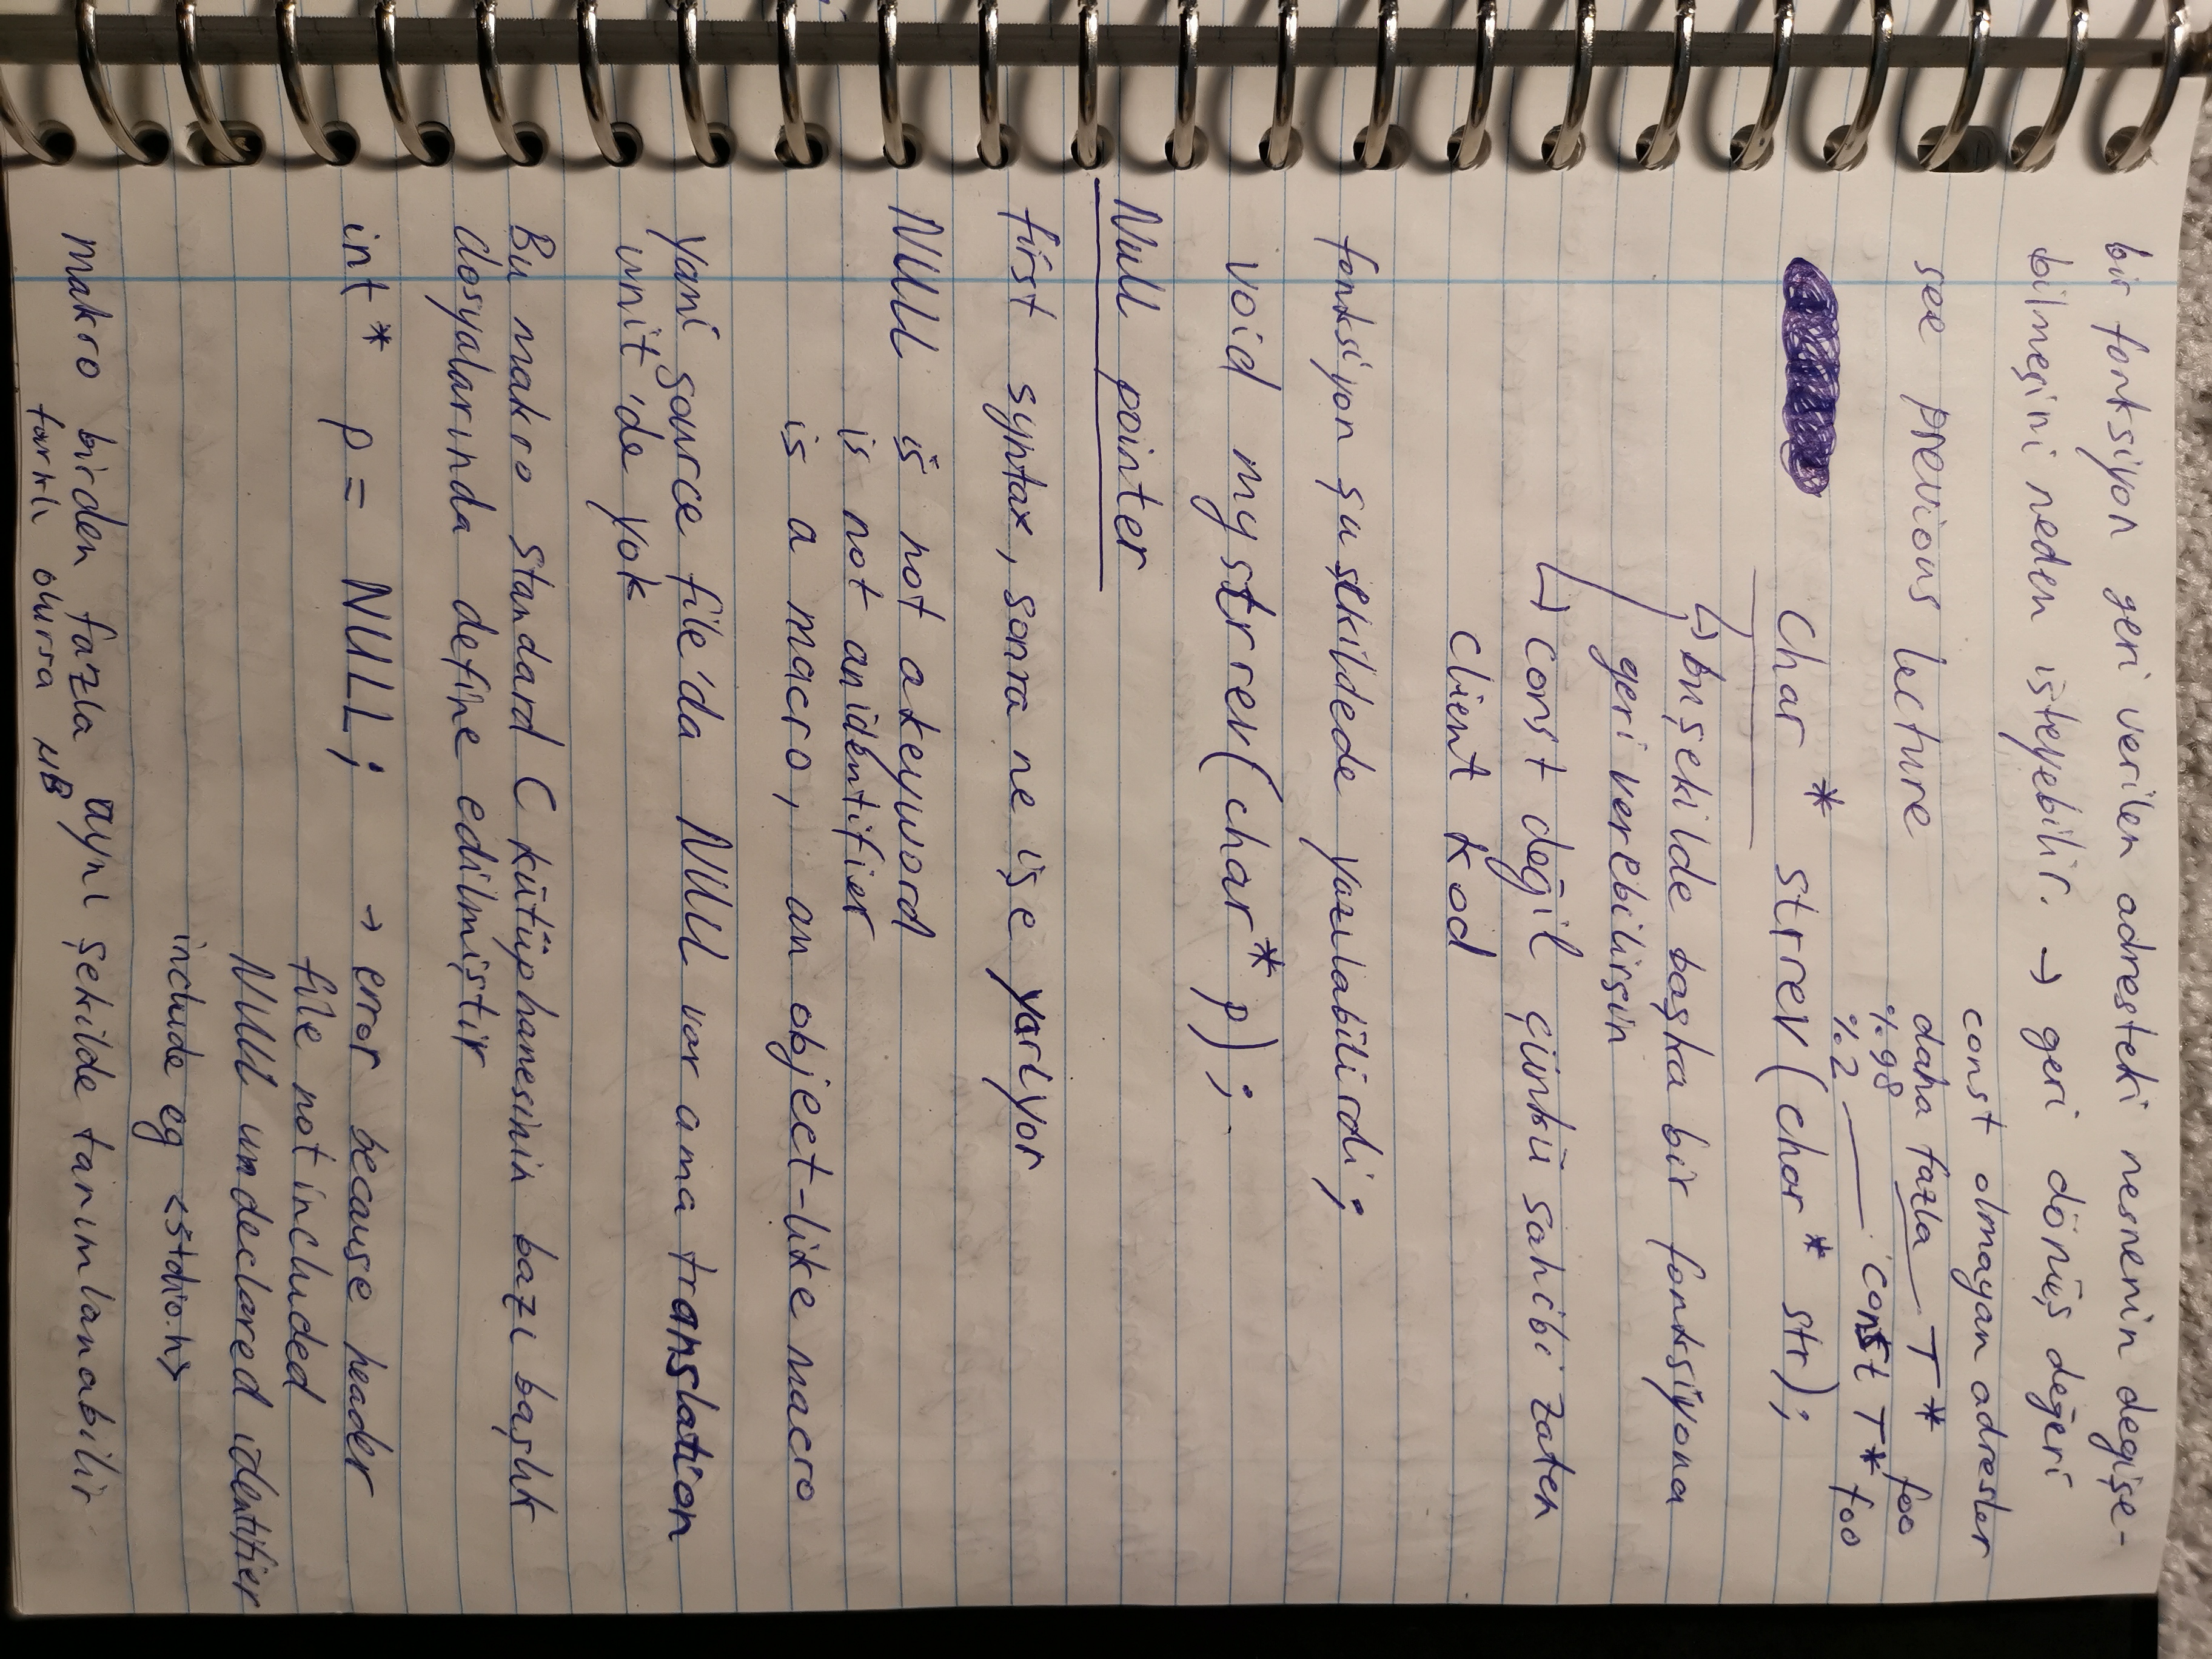 bir fonksiyon geri verilen adresteki nesnenin degişe-
bilmeşini neden işteyebilir. → geri dönüş değeri
const olmayan adresler
see previous lecture
daha fazla — T* foo
%98
%2 — const T* foo
char * strrev(char* str);
↳ bu şekilde başka bir fonksiyona
geri verebilirşin
↳ const değil çünkü sahibi zaten
Client kod
fonksiyon şu şekildede yazılabilirdi;
void mystrrev(char* p);
Null pointer
first syntax, sonra ne işe yarıyor
NULL is not a keyword
is not an identifier
is a macro, an object-like macro
yani source file'da NULL var ama translation
unit 'de yok
Bu makro standard C kütüphanesinin bazı başlık
dosyalarında define edilmiştir
int* p = NULL; → error because header
file not included
NULL undeclared identifier
include eg <stdio.h>
makro birden fazla aynı şekilde tanımlanabilir
farklı olursa UB